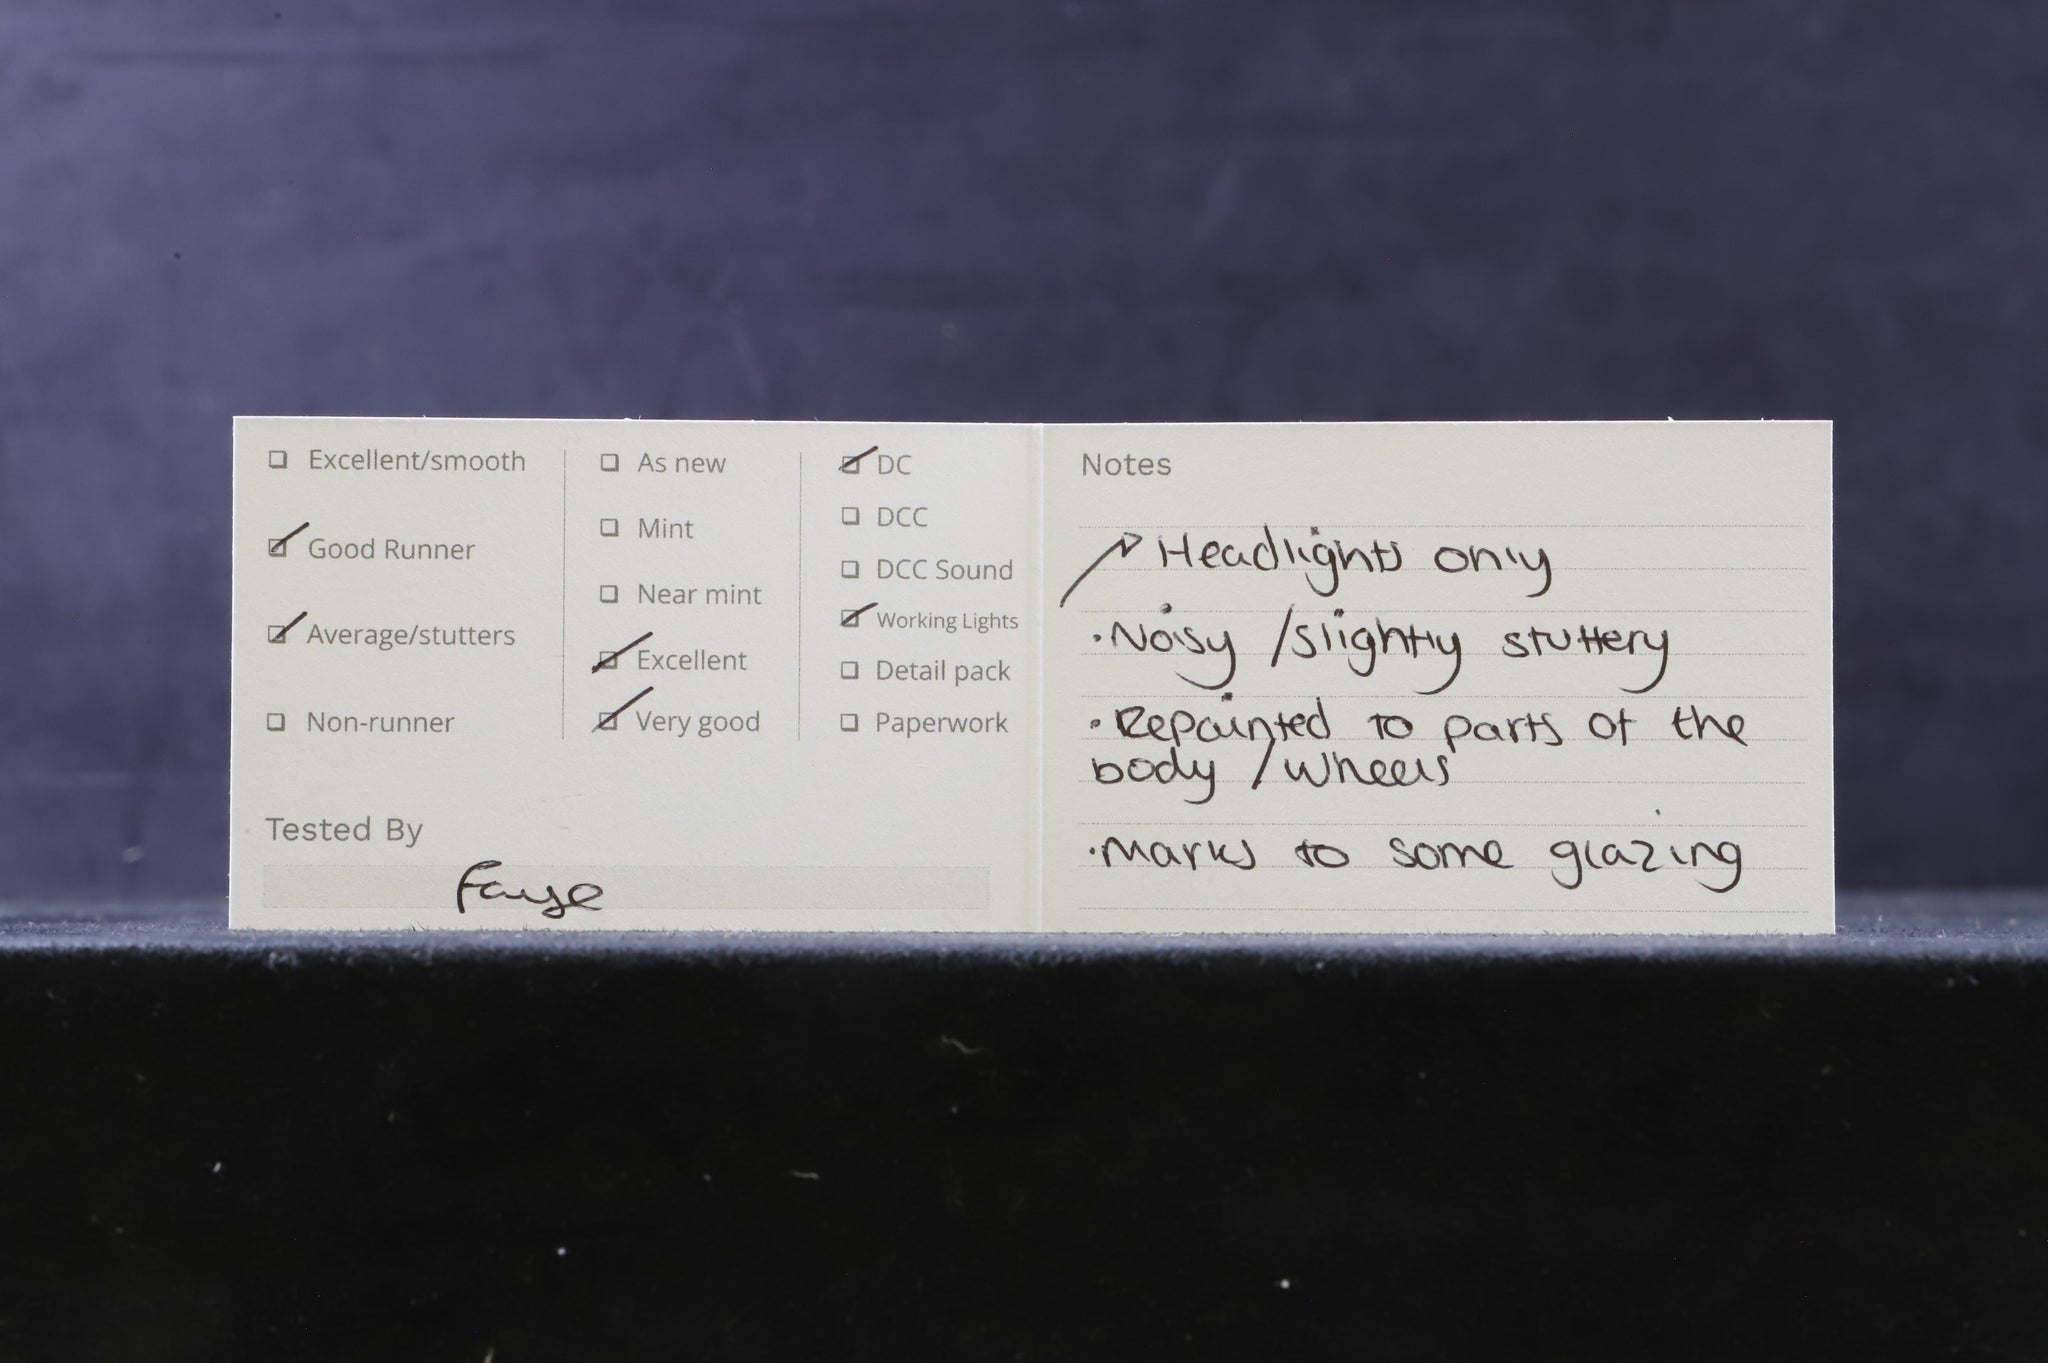 Excellent/smooth
Good Runner
Average/stutters
Non-runner
As new
Mint
Near mint
Excellent
Very good
DC
DCC
DCC Sound
Working Lights
Detail pack
Paperwork
Tested By
Faye
Notes
Headlights only
·Noisy /slightly stuttery
·Repainted to parts of the
body /wheels
·Marks to some glazing